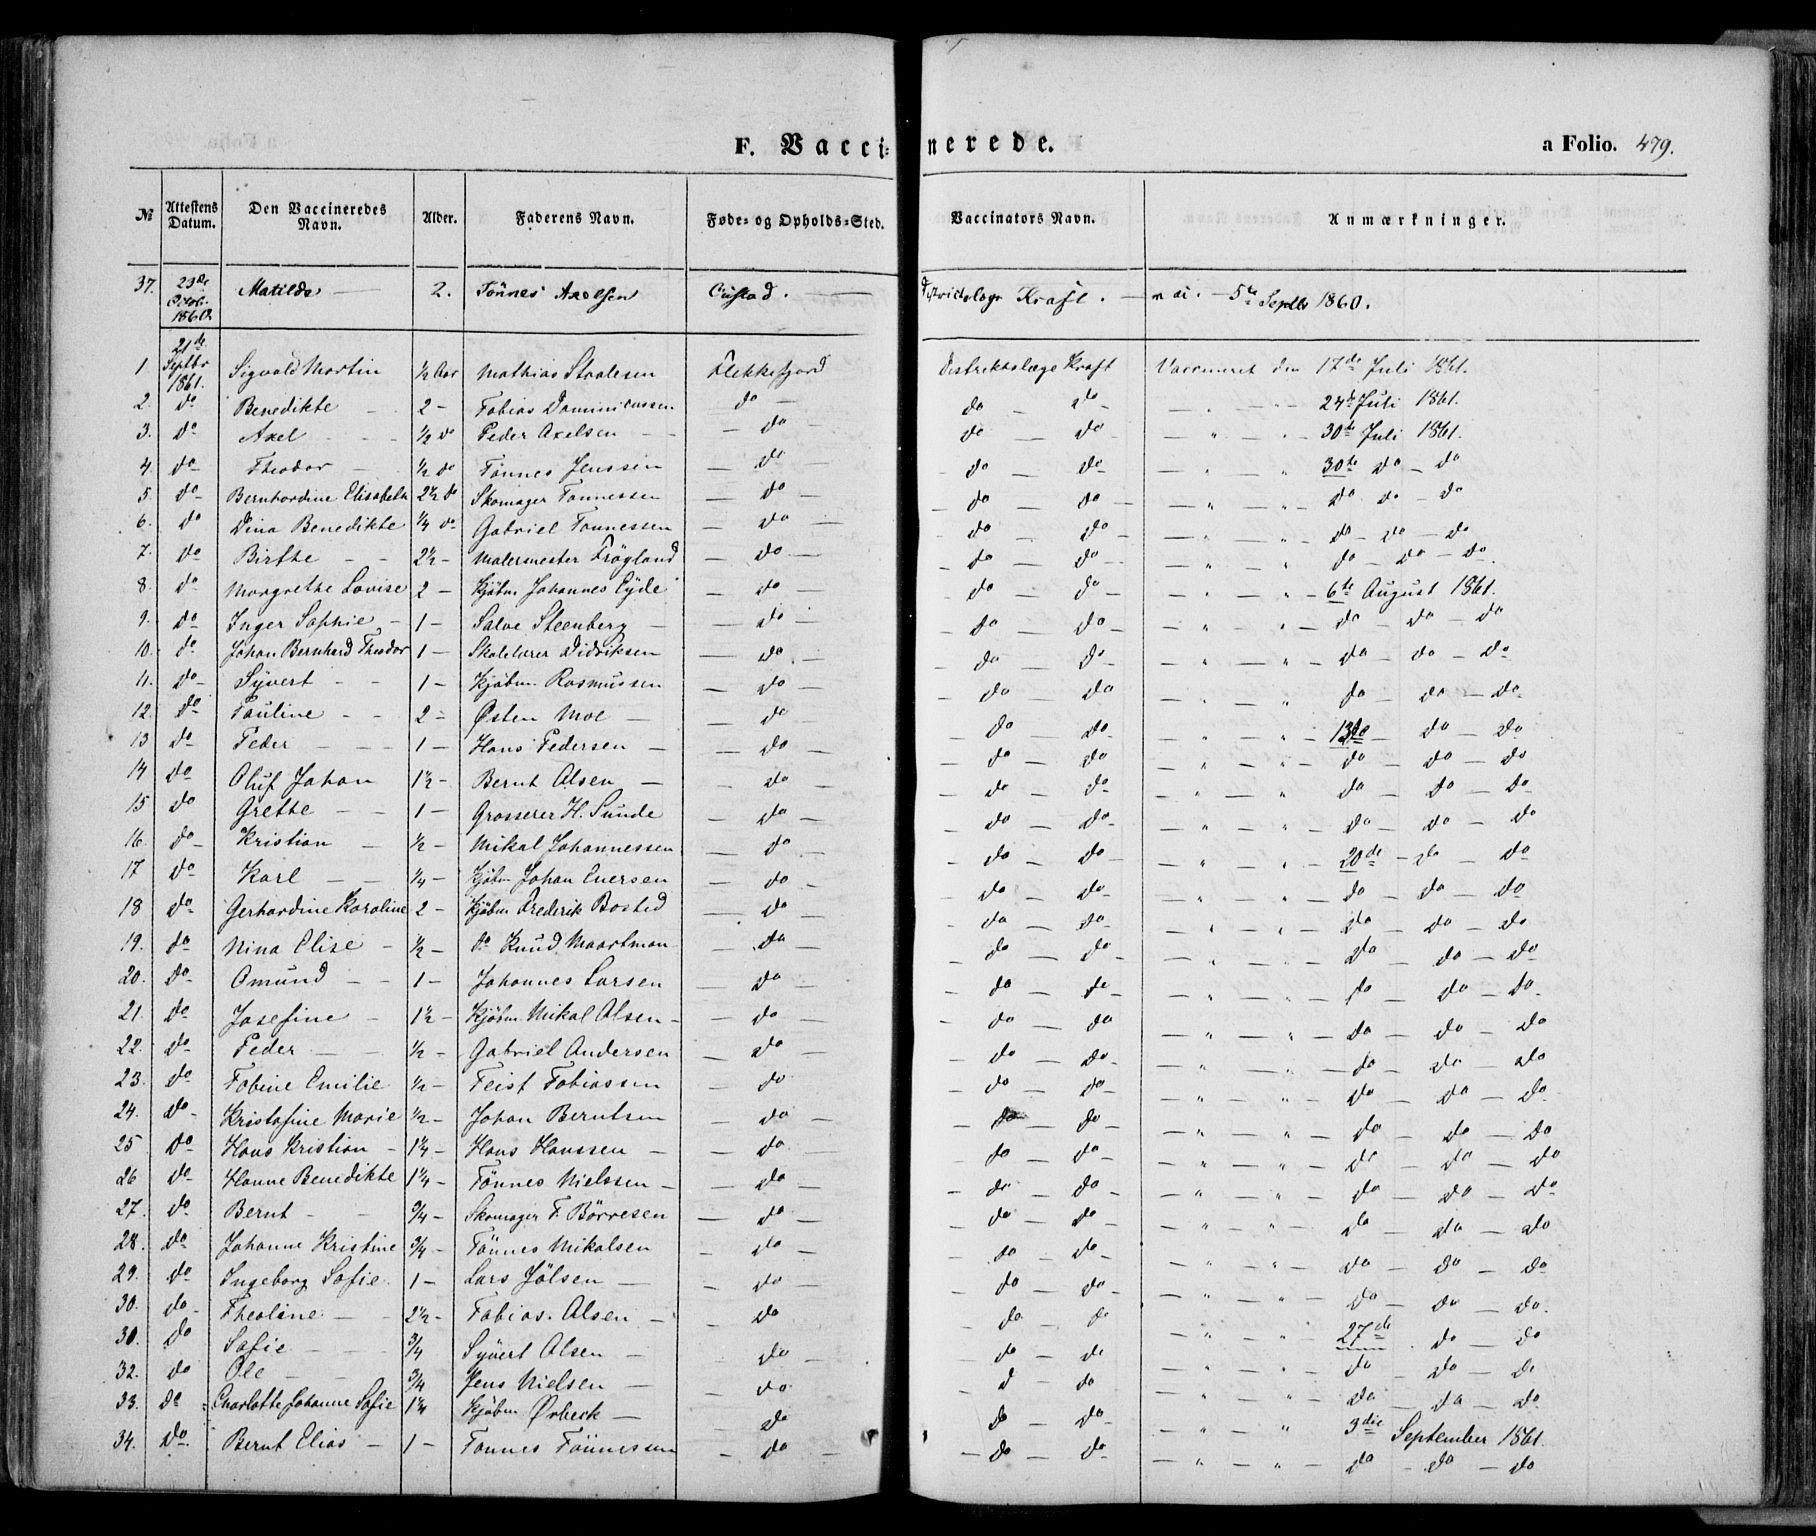 F. Vaccinerede. a Folio. 479.
№ Attestens Datum. Den Vaccineredes Navn. Alder. Faderens Navn. Føde- og Opholds-Sted. Vaccinators Navn. Anmærkninger.
37. 23de Octob. 1860. Matilde — 2. Tönnes Axelsen Custad. — Districtslæge Kraft. — 5te Septbr 1860.
1 21de Septbr 1861. Sigvald Martin ½ Aar Mathias Staalesen Flekkefjord Distriktslæge Kraft Vaccineret den 17de Juli 1861.
2. do Benedikte — 2 — Tobias Dominicussen do — do — do — " — " — 24de Juli 1861.
3. do Axel — ½ do Peder Axelsen — do do — do — " — " — 30te Juli 1861.
4. do Theodor — ½ do Tönnes Jenssen — do — do — do — " — " 30te do — do
5. do Bernhardine Elisabeth 2½ do Skomager Tønnessen — do — do — do — " — " do do — do
6. do Dina Benedikte ¼ do Gabriel Tønnessen — do — do do — " — " do — do — do
7. do Birthe — 2½ — Malermester Frøgland — do — do — do — " — " do — do — do
8. do Margrethe Lovise 2 — Kjøbm Johannes Eyde — do — do — do — " — " — 6te August 1861.
9. do Inger Sophie — 1 — Salve Steenberg — do — do — do — " — " — do — do — do
10. do Johan Bernhard Theodor 1 — Skolelærer Didriksen — do — do — do — " — " do — do — do
11. do Syvert — 1 — Kjøbm. Rasmussen — do — do — do — " — " do — do — do
12. do Pauline — 2 — Østen Moe — do — do — do — " — " — 13de do — do
13 do Peder — 1 — Hans Pedersen — do — do — do — " — " — do — do — do
14 do Oluf Johan 1½ — Bernt Olsen — do — do — do — " — " — do — do — do
15 do Grethe — 1 — Grosserer H. Sunde — do — do — do — " — " — do — do — do
16 do Kristian — ½ — Mikal Johannessen — do — do — do — " — " 20de — do — do
17 do Karl — ¼ — Kjøbm Johan Eversen — do — do — do — " — " — do — do — do
18 do Gerhardine Karoline 2 — Kjøbm Frederik Bosted — do — do — do — " — " — do — do — do
19. do Nina Elise — ½ — do Knud Maartman — do — do — do — " — " — do — do — do
20. do Omund — 1 — Johannes Larsen — do — do — do — " — " — do — do — do
21. do Josefine — 1½ — Kjøbm Mikal Olsen — do — do — do — " — " — do — do — do
22. do Peder — ½ — Gabriel Andersen — do — do — do — " — " — do — do — do
23. do Tobine Emilie ½ — Feist Tobiassen — do — do — do — " — " — do — do — do
24. do Kristofine Marie ½ — Johan Berntsen — do — do — do — " — " — do — do — do
25 do Hans Kristian — 1¼ — Hans Hanssen — do — do — do — " — " — do — do — do
26 do Hanne Benedikte 1¼ — Tönnes Nielssen — do — do — do — " — " — do — do — do
27. do Bernt — ¾ — Skomager T. Börresen — do — do — do — " — " — do — do — do
28. do Johanne Kristine ¾ — Tönnes Mikalsen — do — do — do — " — " — do — do — do
29. do Ingeborg Sofie. 1 — Lars Jölsen — do — do — do — " — " — do — do — do
30. do Theoline — 2½ — Tobias. Olsen — do — do do — " — " — 27de do — do
30. do Sofie — ¾ Syvert Olsen — do — do — do — " — " do — do — do
32. do Ole — ¾ Jens Nielsen — do — d — do — " — " — do — do — do
33. do Charlotte Johanne Sofie 1¼ Kjöbm Ørbeck — do do — do — " — " 3die September 1861.
34. do Bernt Elias — 1 — Tønnes Tönnessen — do — do — do — " — " — do — do — do